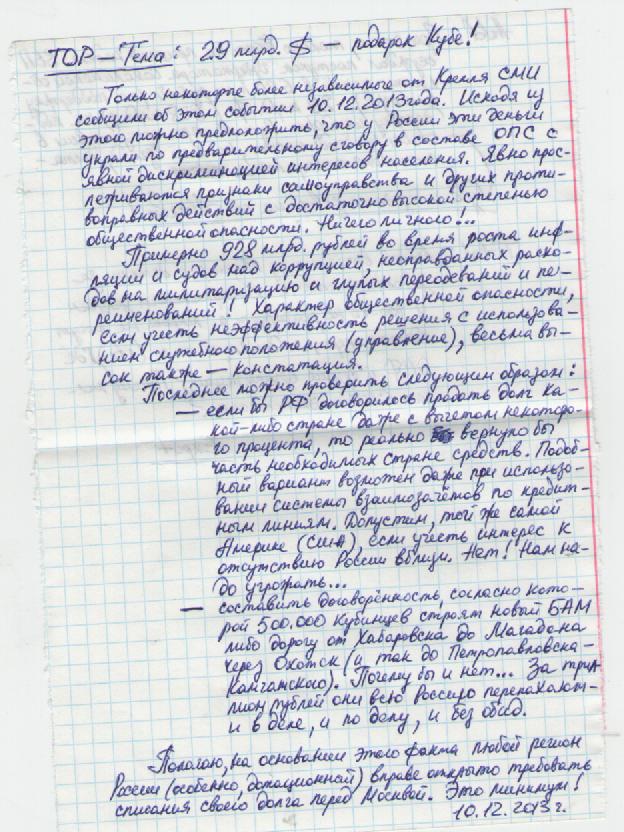 TOP – Тема: 29 млрд. $ – подарок Кубе!
Только некоторые более независимые от Кремля СМИ
сообщили об этом событии 10.12.2013 года. Исходя из
этого можно предположить, что у России эти деньги
украли по предварительному сговору в составе ОПС с
явной дискриминацией интересов населения. Явно прос-
летриваются признаки самоуправства и других проти-
воправных действий с достаточно высокой степенью
общественной опасности. Ничего личного!..
Примерно 928 млрд. рублей во время роста инф-
ляции и судов над коррупцией, неоправданных расхо-
дов на милитаризацию и глупых переодеваний и пе-
реименований! Характер общественной опасности,
если учесть неэффективность решения с использова-
нием служебного положения (управление), весьма вы-
сок также – констатация.
Последнее можно проверить следующим образом:
– если бы РФ договорилось продать долг ка-
кой-либо стране даже с вычетом некоторо-
го процента, то реально вернуло бы
часть необходимых стране средств. Подоб-
ный вариант возможен даже при использо-
вании системы взаимозачётов по кредит-
ным линиям. Допустим, той же самой
Америке (США), если учесть интерес к
отсутствию России вблизи. Нет! Нам на-
до угрожать...
– составить договорённость, согласно кото-
рой 500.000 кубинцев строят новый БАМ
либо дорогу от Хабаровска до Магадана
через Охотск (и так до Петропавловска-
Камчатского). Почему бы и нет... За трил
лион рублей они всю Россию перепахают –
и в деле, и по делу, и без обид.
Полагаю, на основании этого факта любой регион
России (особенно, дотационный) вправе открыто требовать
списания своего долга перед Москвой. Это минимум!
10.12.2013 г.